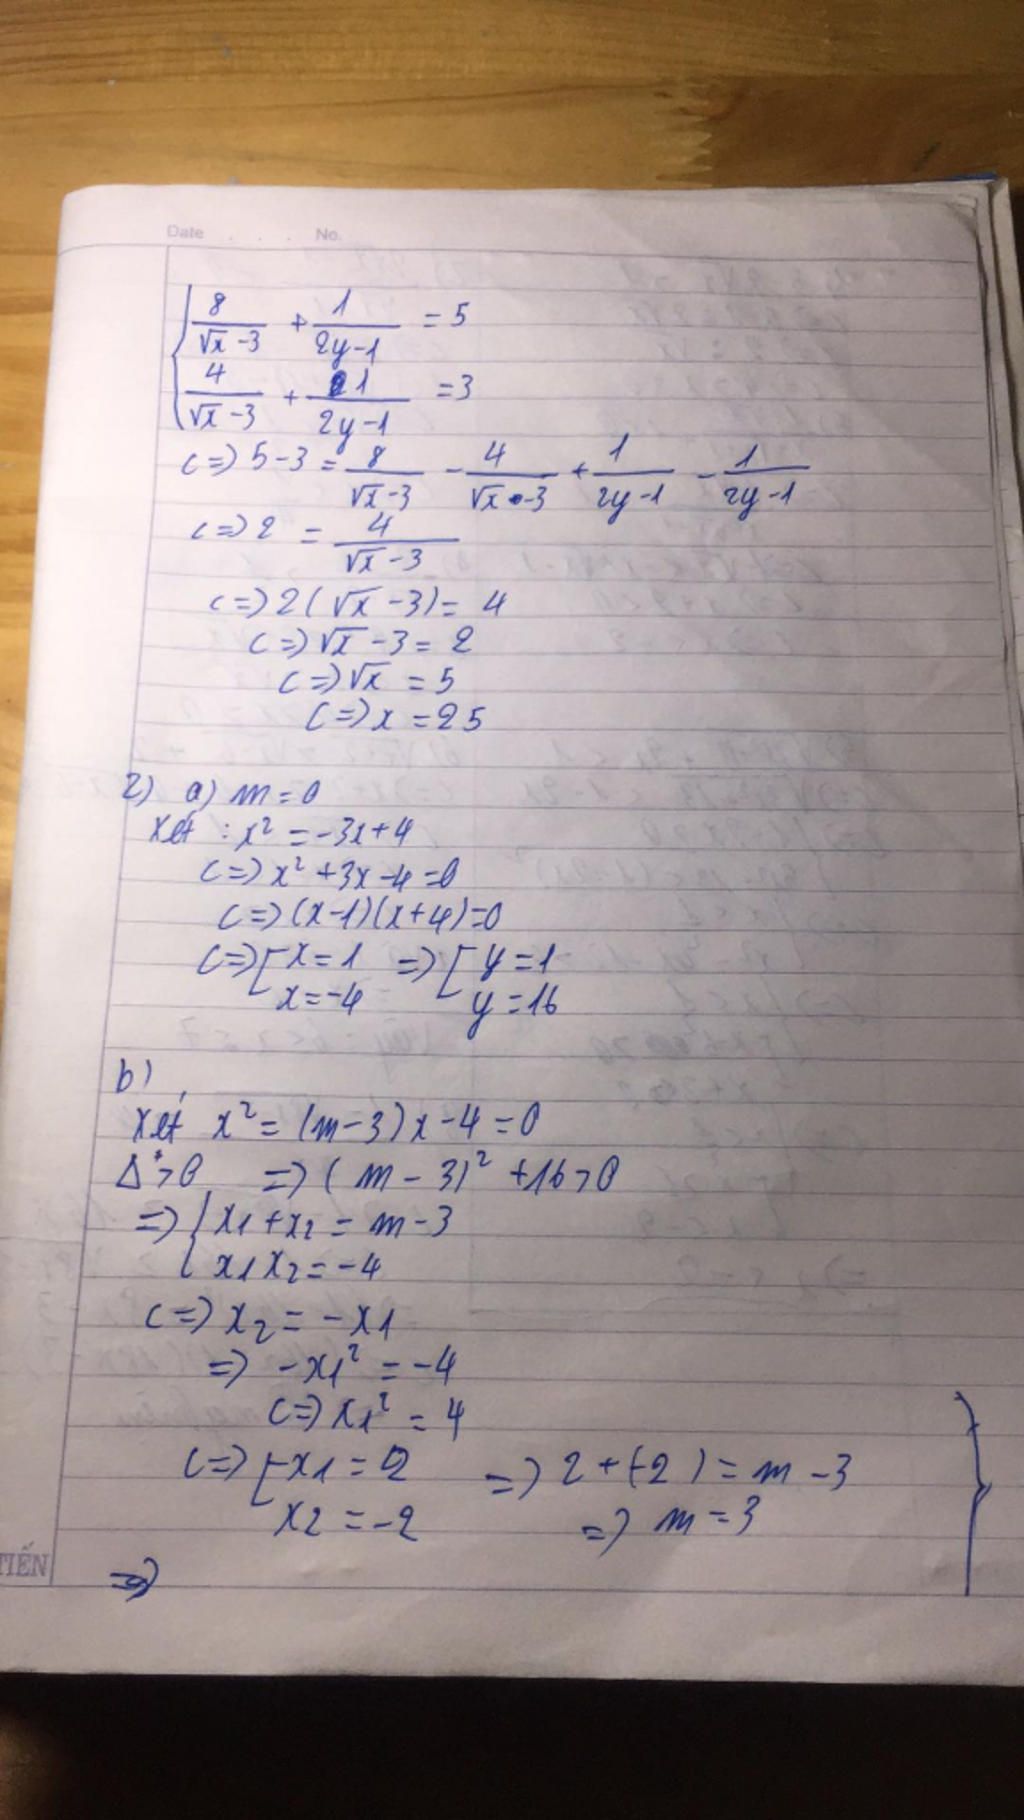 Date . . . No.
{ 8/(√x -3) + 1/(2y-1) = 5
4/(√x -3) + 1/(2y-1) = 3
<=> 5-3 = 8/(√x -3) - 4/(√x -3) + 1/(2y-1) - 1/(2y-1)
<=> 2 = 4/(√x -3)
<=> 2(√x -3) = 4
<=> √x -3 = 2
<=> √x = 5
<=> x = 25
2) a) m = 0
Xét : x² = -3x+4
<=> x² +3x-4=0
<=> (x-1)(x+4)=0
<=> [ x = 1 => [ y = 1
x = -4 y = 16
b)
Xét x² = (m-3)x-4=0
Δ > 0 => (m-3)² +16>0
=> { x1+x2 = m-3
x1x2 = -4
<=> x2 = -x1
=> -x1² = -4
<=> x1² = 4
<=> [ x1 = 2 => 2+(-2) = m-3
x2 = -2 => m = 3
TIẾN =>